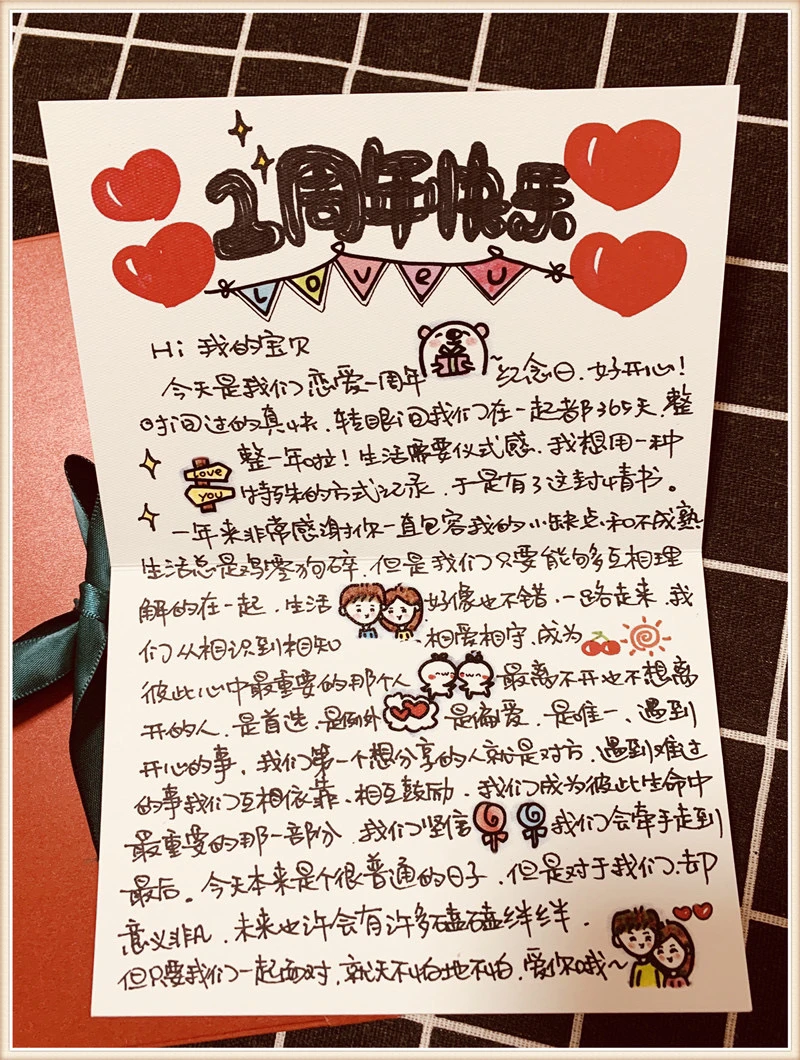 1周年快乐
LOVEU
Hi 我的宝贝
今天是我们恋爱一周年~纪念日、好开心!
时间过的真快、转眼间我们在一起都365天、整
整一年啦!生活需要仪式感、我想用一种
love
you
特殊的方式记录、于是有了这封情书。
一年来非常感谢你一直包容我的小缺点和不成熟
生活总是鸡零狗碎、但是我们只要能够互相理
解的在一起、生活好像也不错、一路走来、我
们从相识到相知、相爱相守、成为
彼此心中最重要的那个人最离不开也不想离
开的人、是首选、是例外是偏爱、是唯一、遇到
开心的事、我们第一个想分享的人就是对方、遇到难过
的事我们互相依靠、相互鼓励、我们成为彼此生命中
最重要的那一部分、我们坚信我们会牵手走到
最后。今天本来是个很普通的日子、但是对于我们、却
意义非凡、未来也许会有许多磕磕绊绊、
但只要我们一起面对、就天不怕地不怕、爱你哦~